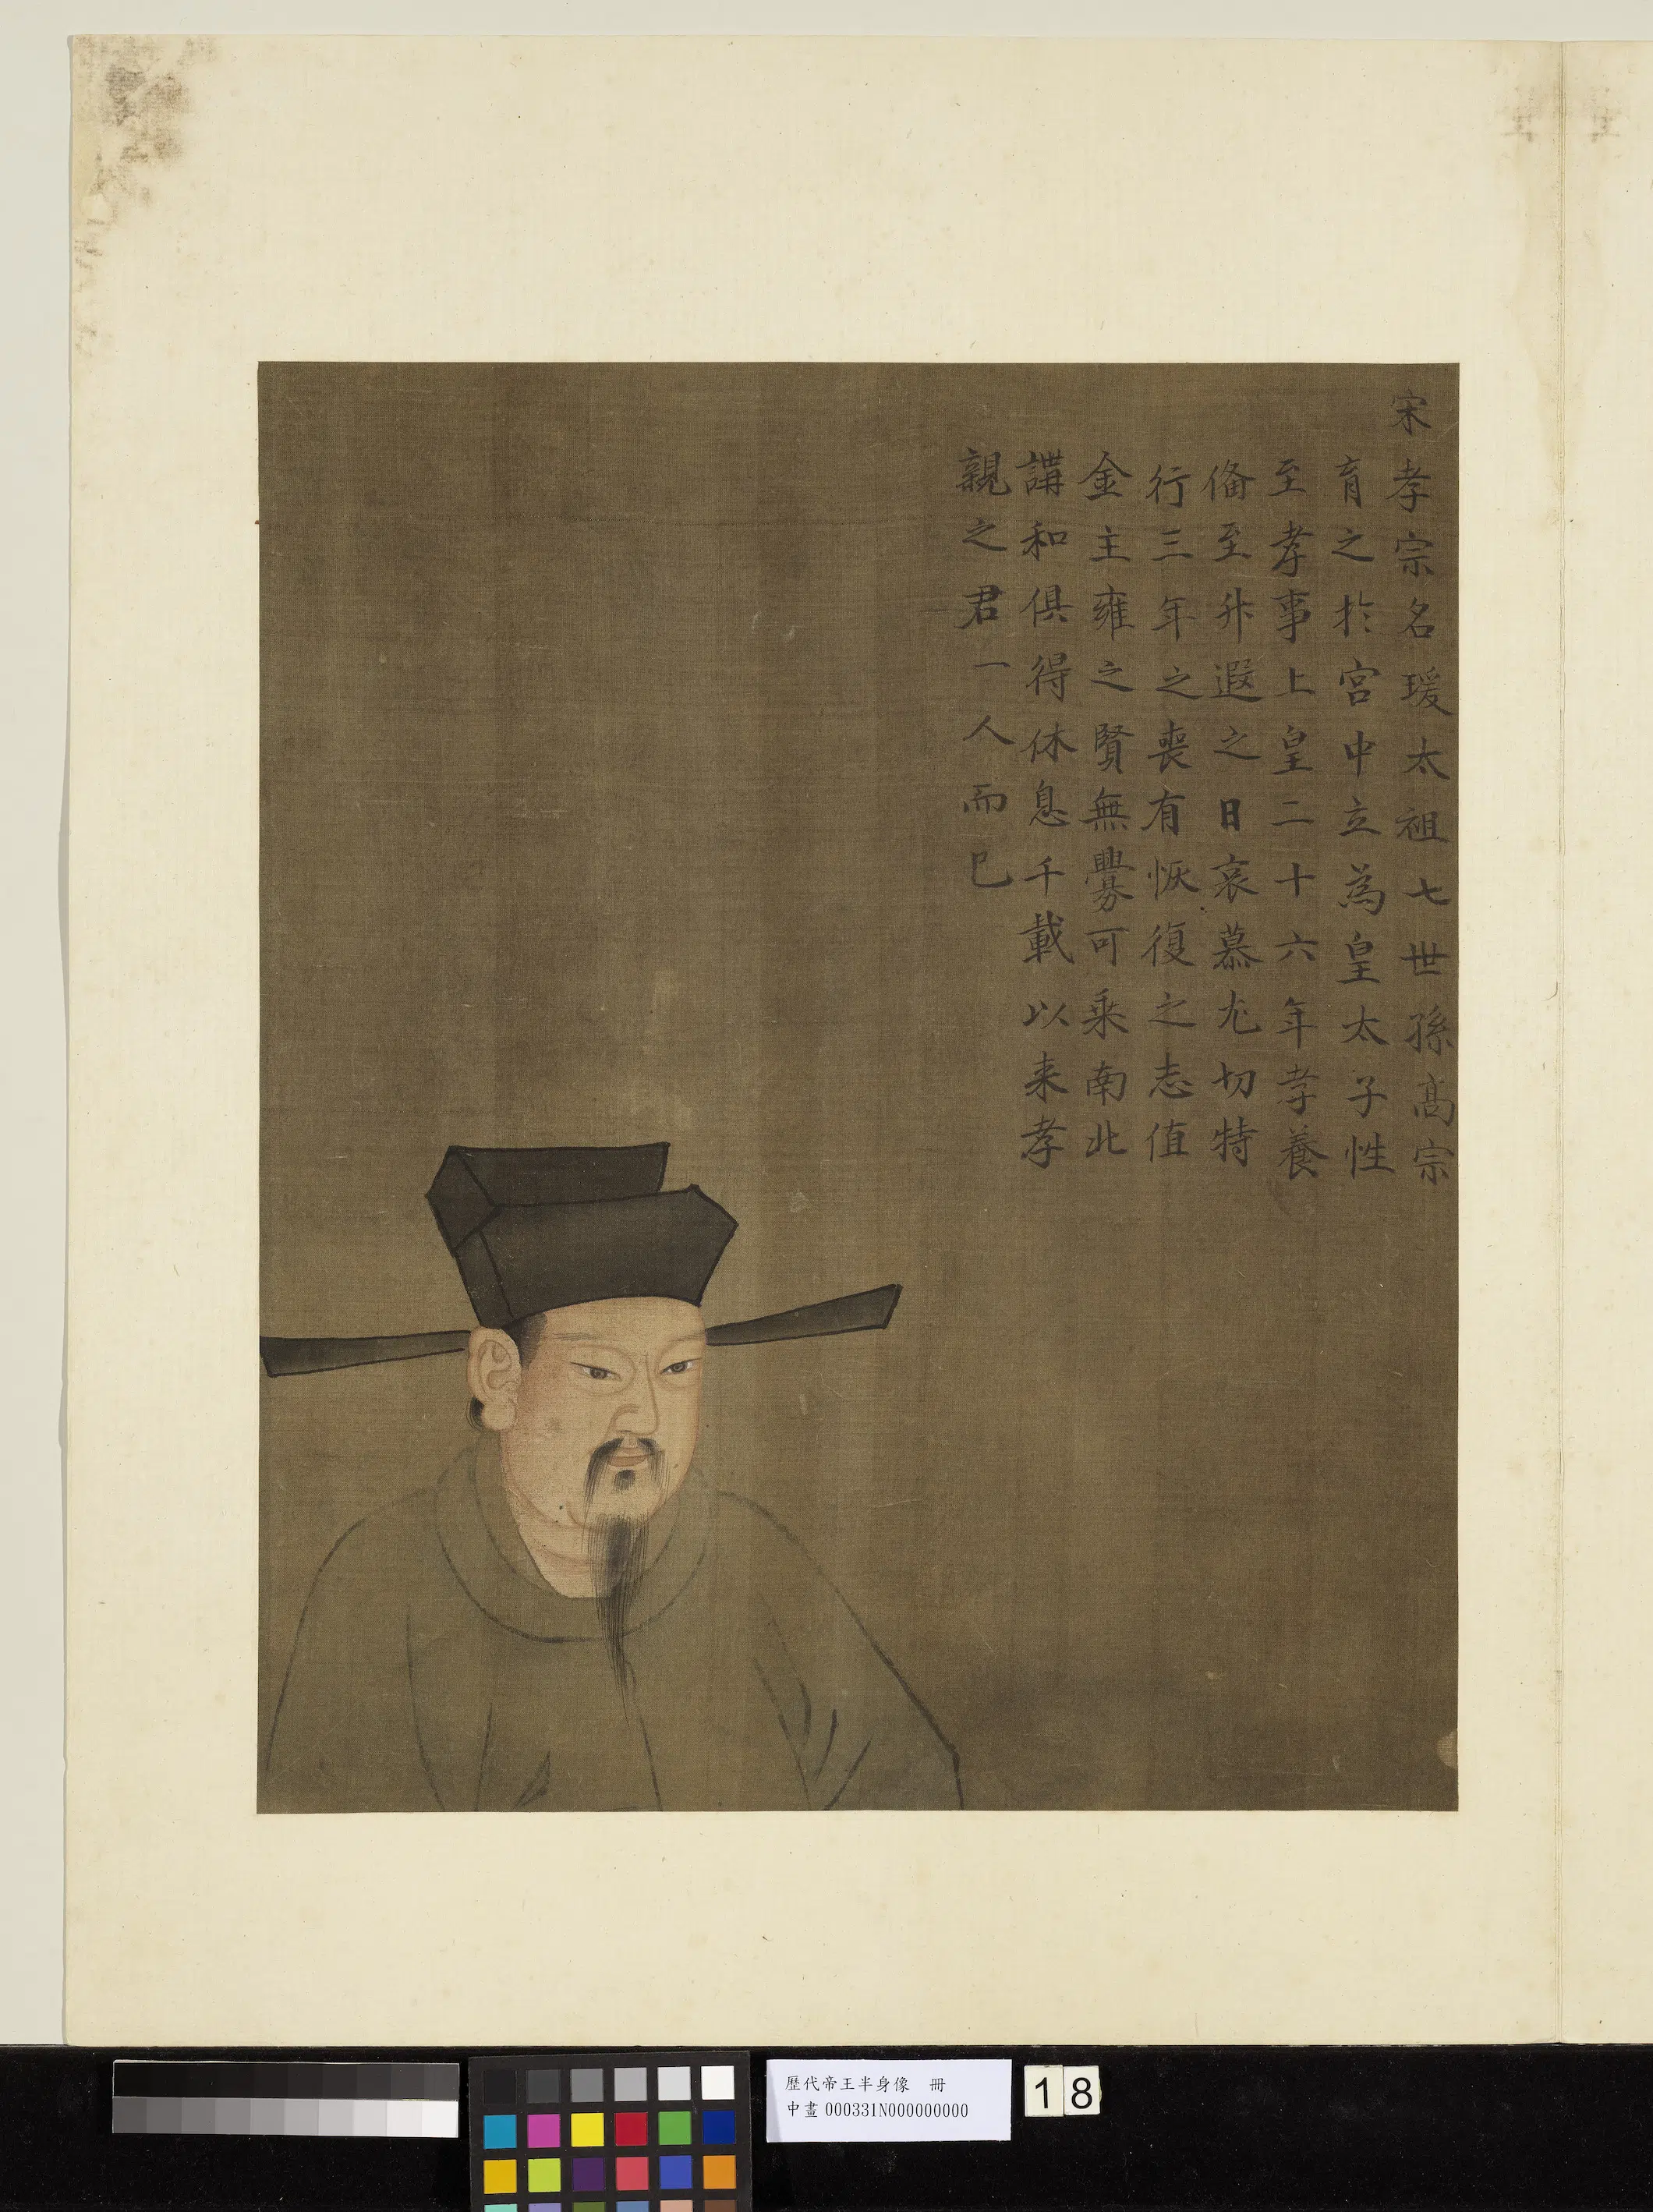 宋孝宗名瑗太祖七世孫高宗
育之於宮中立為皇太子性
至孝事上皇二十六年孝養
俻至升遐之日哀慕尤切特
行三年之喪有恢復之志值
金主雍之賢無釁可乘南北
講和俱得休息千載以来孝
親之君一人而已
歷代帝王半身像 冊
中畫000331N000000000
18